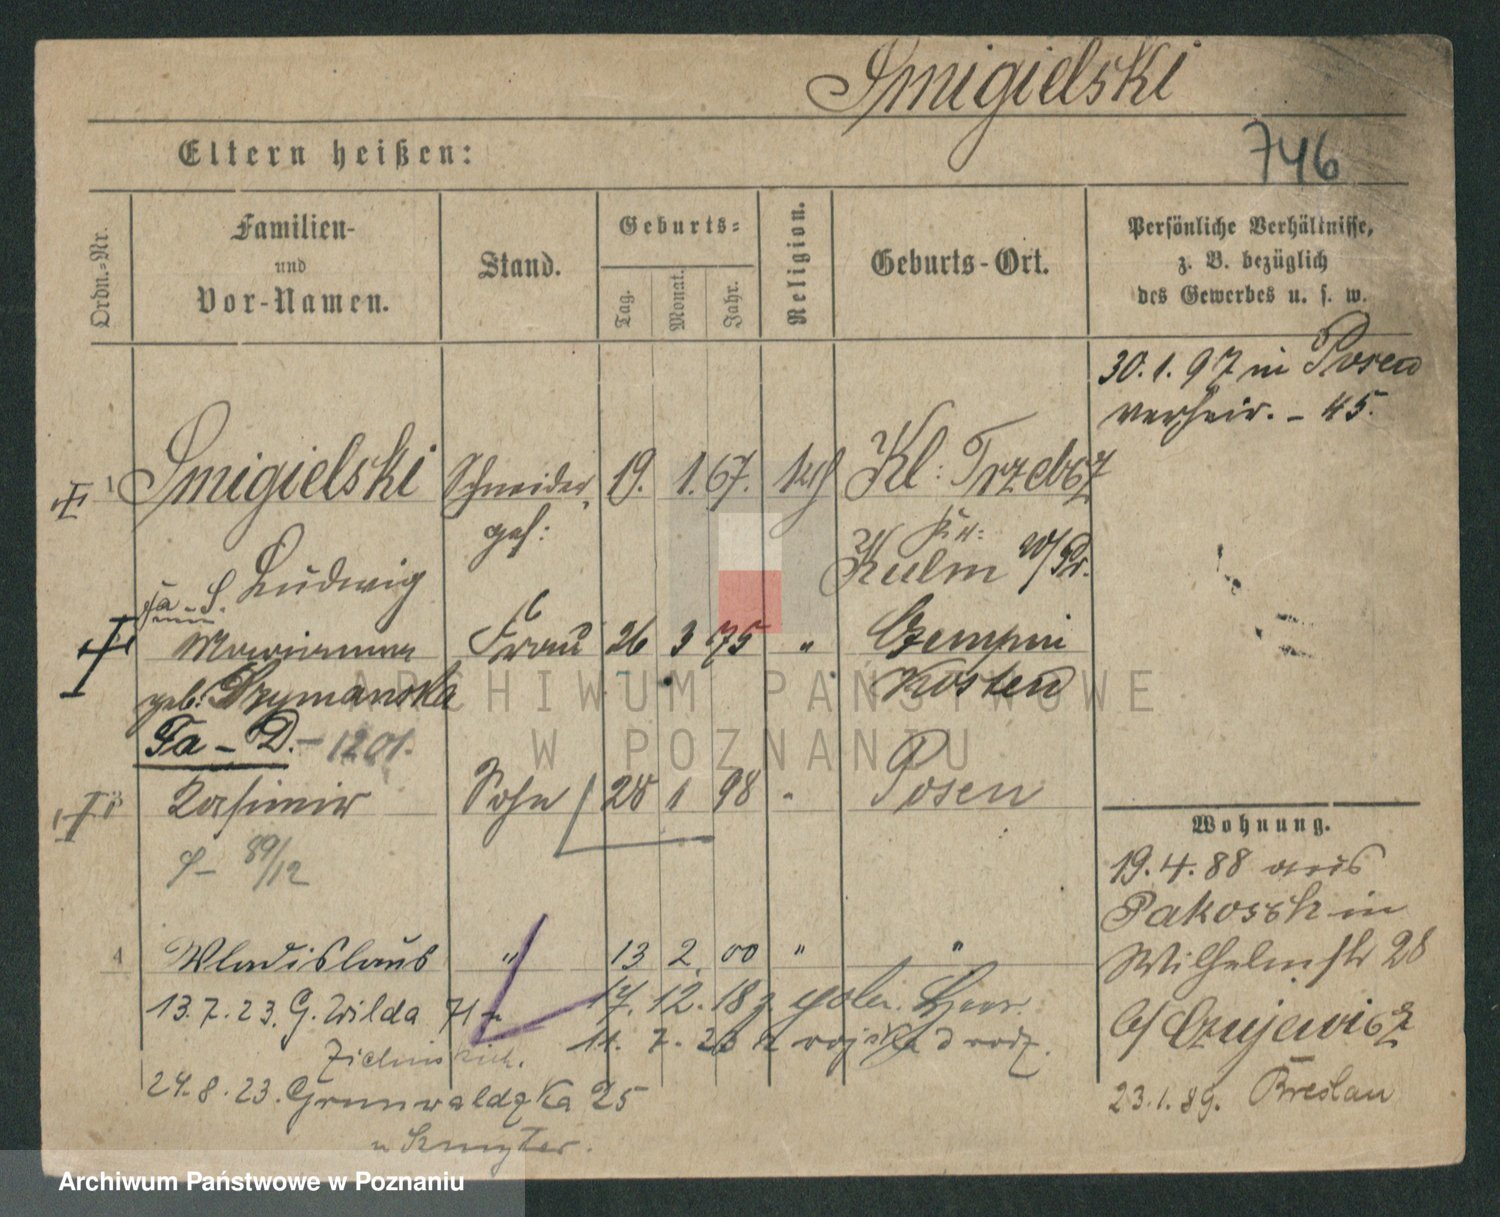 Smigielski
746
Eltern heißen:
Ordn.-Nr.
Familien-
und
Vor-Namen.
Stand.
Geburts-
Tag.
Monat.
Jahr.
Religion.
Geburts-Ort.
Persönliche Verhältnisse,
z. B. bezüglich
des Gewerbes u. s. w.
30.1.97 in Posen
verheir. - 45.
1 Smigielski Schneider 19. 1. 67. kth Kl: Trzebcz
ges:
Ludwig Kulm W/Pr.
Marianna Frau 26 3 75 " Czempin
geb. Szymanska Kosten
Fa - D. - 1201.
Kasimir Sohn 28 1 98 " Posen
S - 89/12
4 Wladislaus " 13 2 00 " "
13.7.23. G. Wilda 71 17. 12. 18
11. 7. 23 z
24.8.23. Grunwaldzka 25
u
Wohnung.
19.4.88 aus
Pakossh in
Wilhelmstr 28
b/ Czujewicz
23.1.89. Breslau
ARCHIWUM PAŃSTWOWE
W POZNANIU
Archiwum Państwowe w Poznaniu